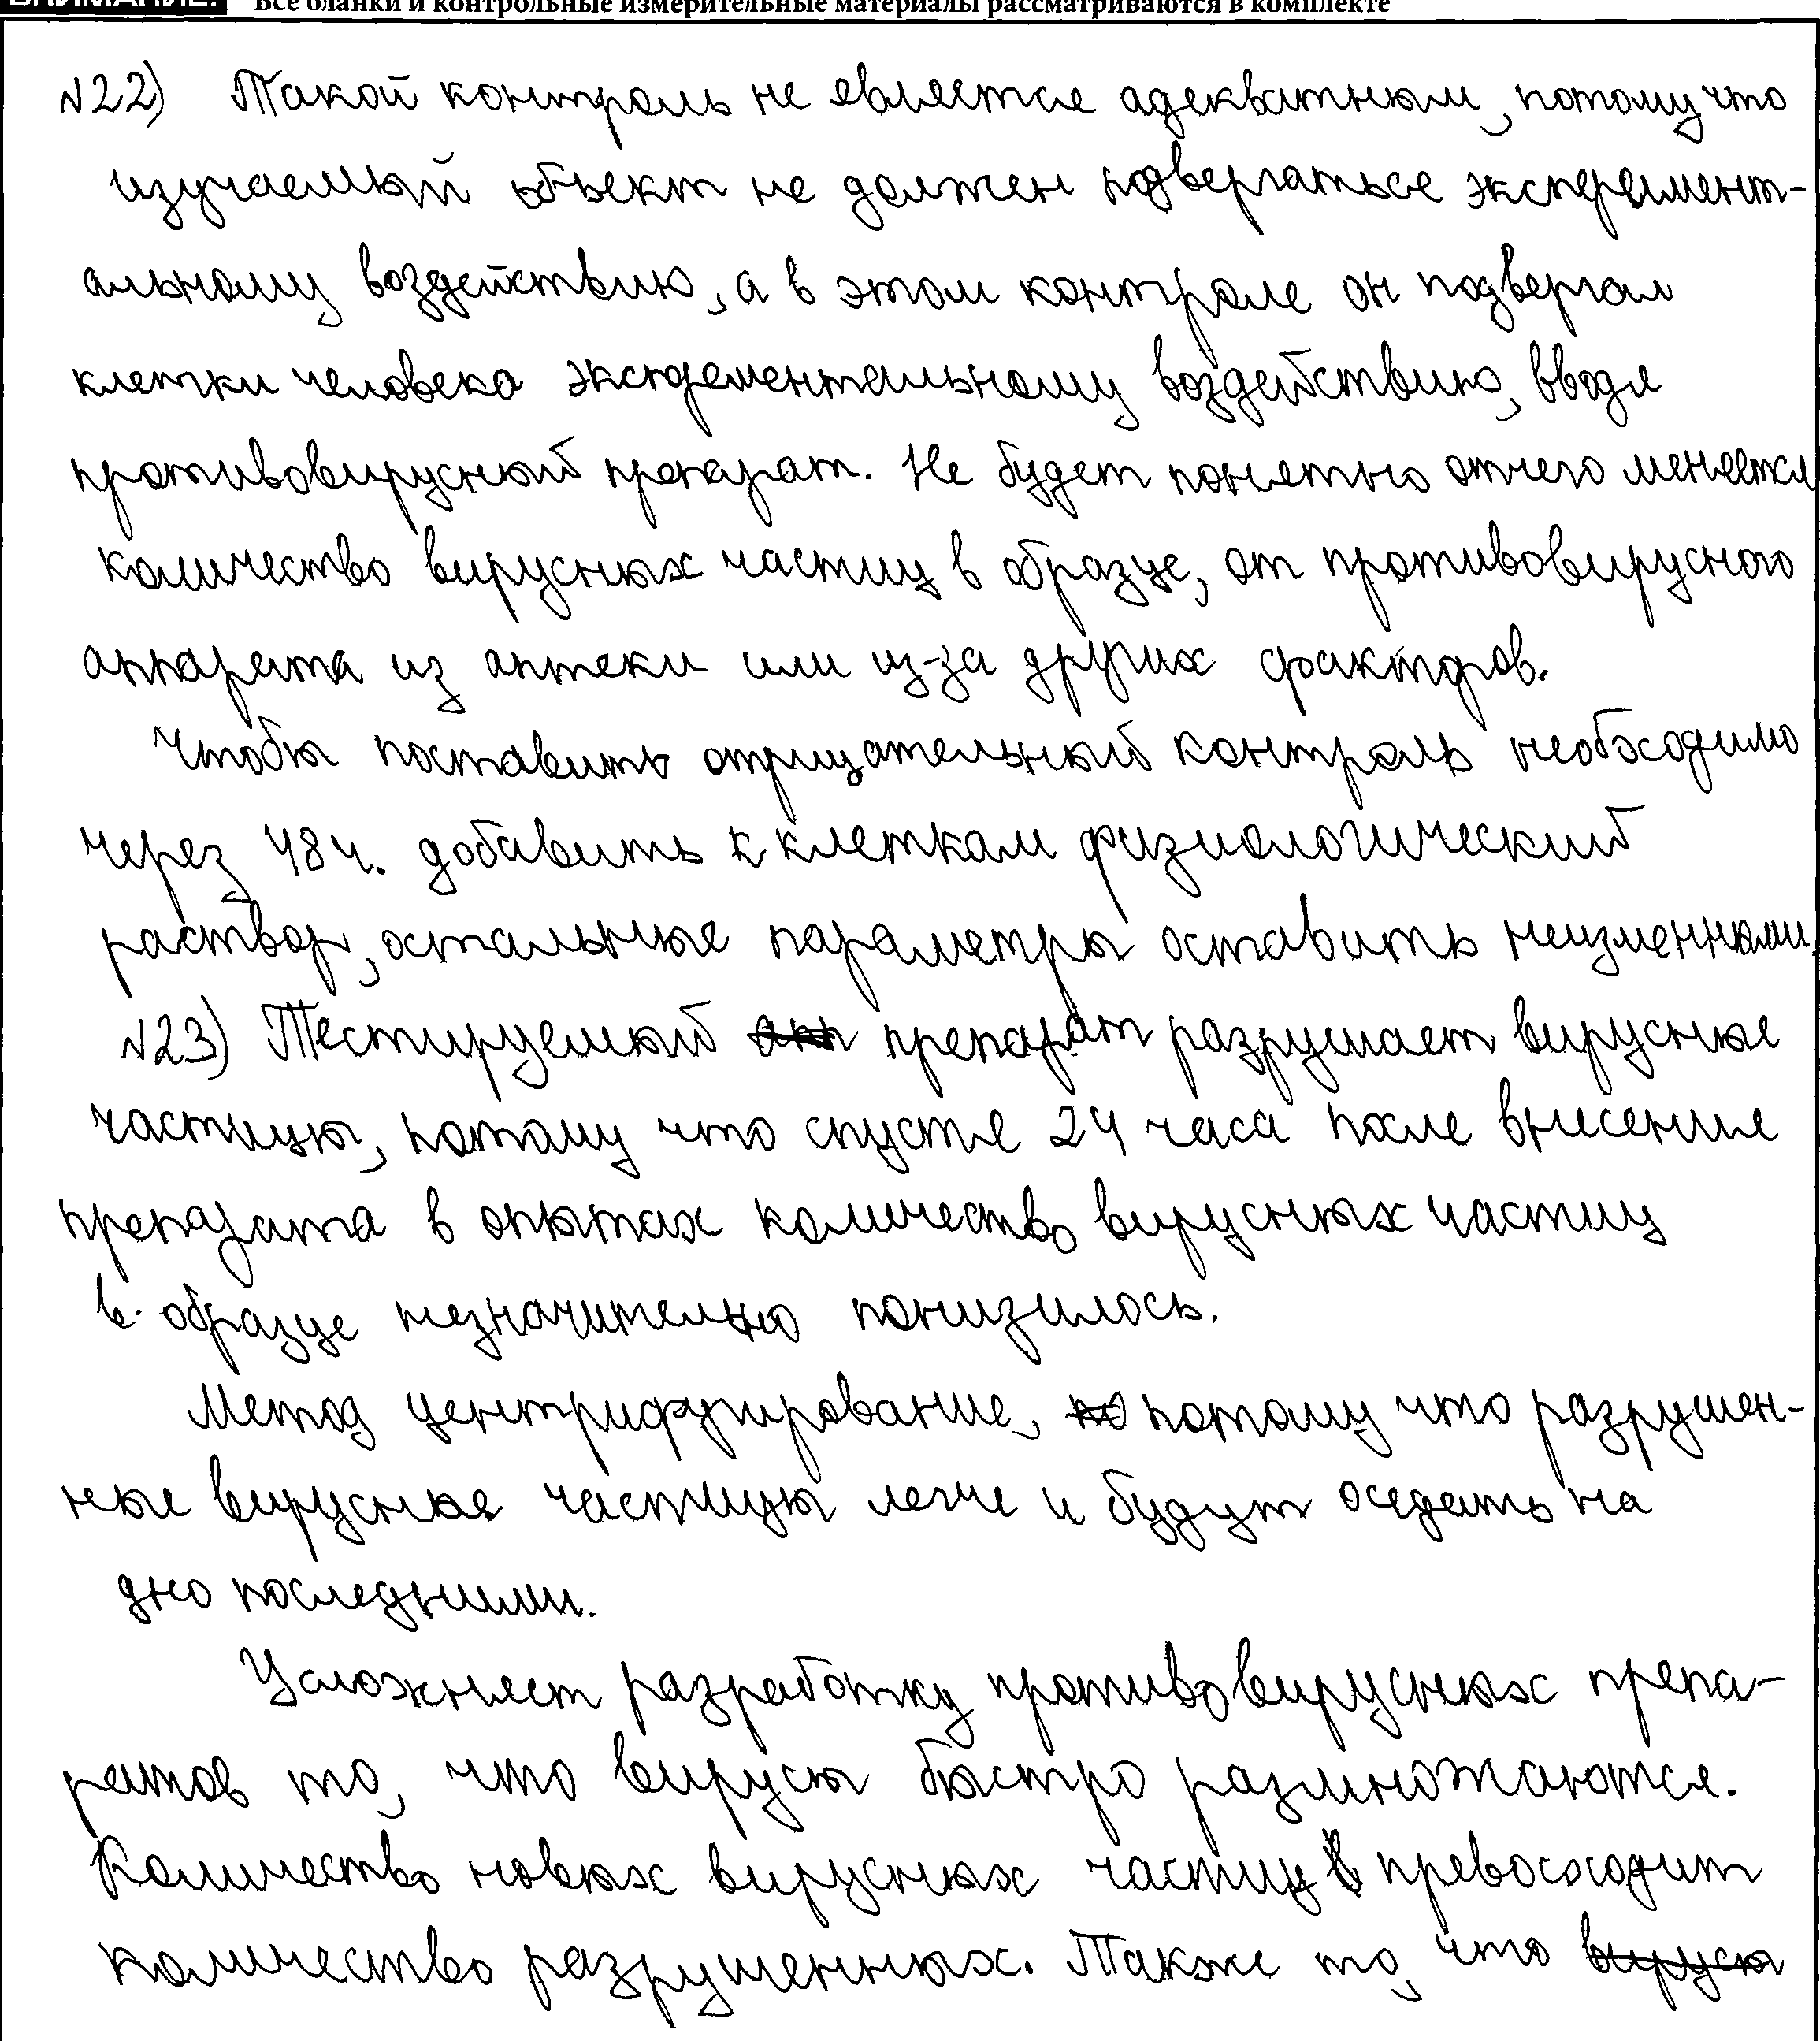 ВНИМАНИЕ! Все бланки и контрольные измерительные материалы рассматриваются в комплекте
№22) Такой контроль не является адекватным, потому что
изучаемый объект не должен подвергаться эксперемент-
альному воздействию, а в этом контроле он подвергал
клетки человека эксперементальному воздействию, вводя
противовирусный препарат. Не будет понятно отчего меняется
количество вирусных частиц в образце, от противовирусного
аппарата из аптеки или из-за других факторов.
Чтобы поставить отрицательный контроль необходимо
через 48 ч. добавить к клеткам физиологический
раствор, остальные параметры оставить неизменными.
№23) Тестируемый препарат разрушает вирусные
частицы, потому что спустя 24 часа после внесения
препарата в опытах количество вирусных частиц
в образце незначительно понизилось.
Метод центрифугирование, потому что разрушен-
ные вирусные частицы легче и будут оседать на
дно последними.
Усложняет разработку противовирусных препа-
ратов то, что вирусы быстро размножаются.
Количество новых вирусных частиц превосходит
количество разрушенных. Также то, что вирусы